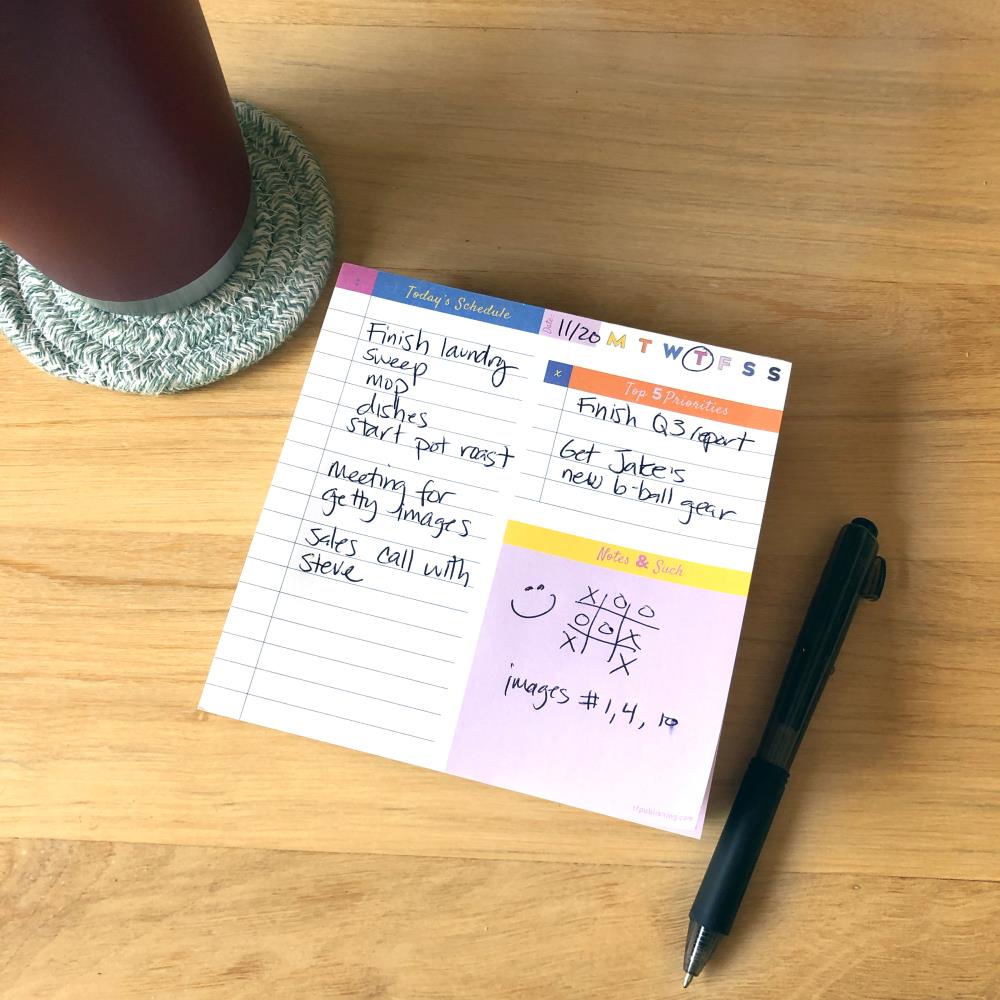 Today's Schedule
Date: 11/20 M T W T F S S
Finish laundry
sweep
mop
dishes
start pot roast
Meeting for
getty images
Sales call with
Steve
x Top 5 Priorities
Finish Q3 report
Get Jake's
new b-ball gear
Notes & Such
X O O
O O X
X X
images #1, 4, 10
tfpublishing.com